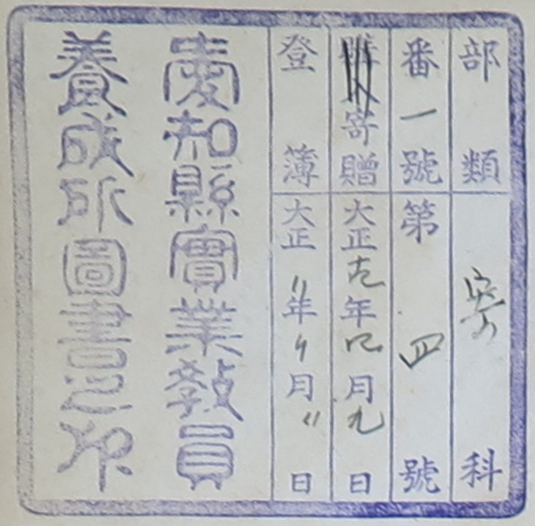 部類 科
番一號 第四號
寄贈 大正 年四月九日
登簿 大正〃年〃月〃日
愛知縣實業敎員
養成所圖書之印